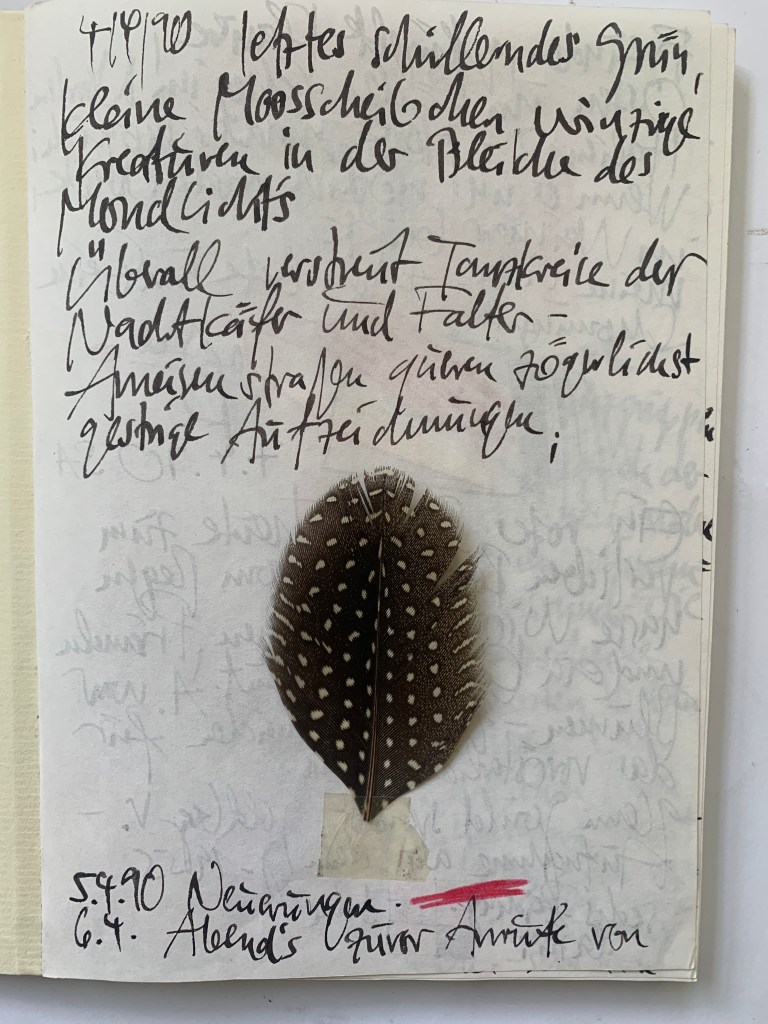 4/4/90 letztes schillerndes Grün,
kleine Moosscheibchen winzige
Kreaturen in der Bleiche des
Mondlicht's
Überall verstreut Tanzkreise der
Nachtkäfer und Falter –
Ameisenstraßen queren zögerlichst
gestrige Aufzeichnungen;
5.4.90 Neuerungen.
6.4. Abend's zuvor Anrufe von